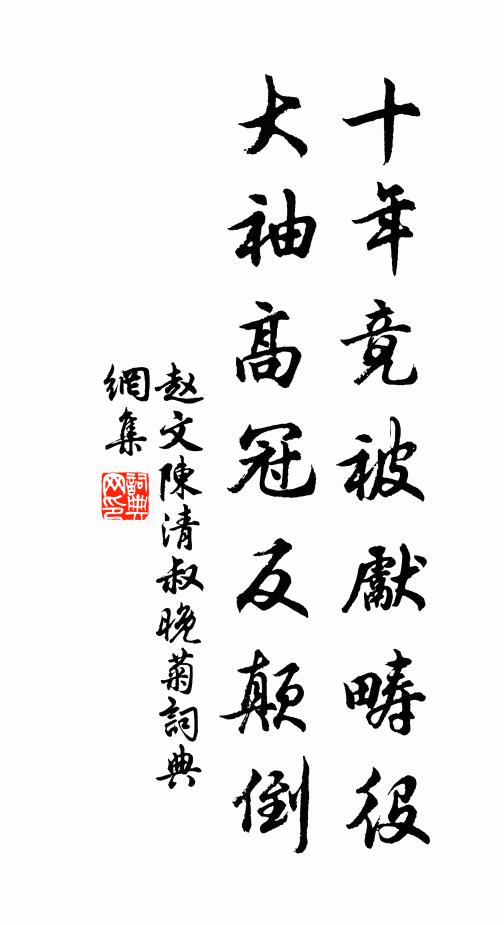 十年竟被獻疇役
大袖高冠反顛倒
赵文陳清叔晚菊詞典
網集
詞典网印